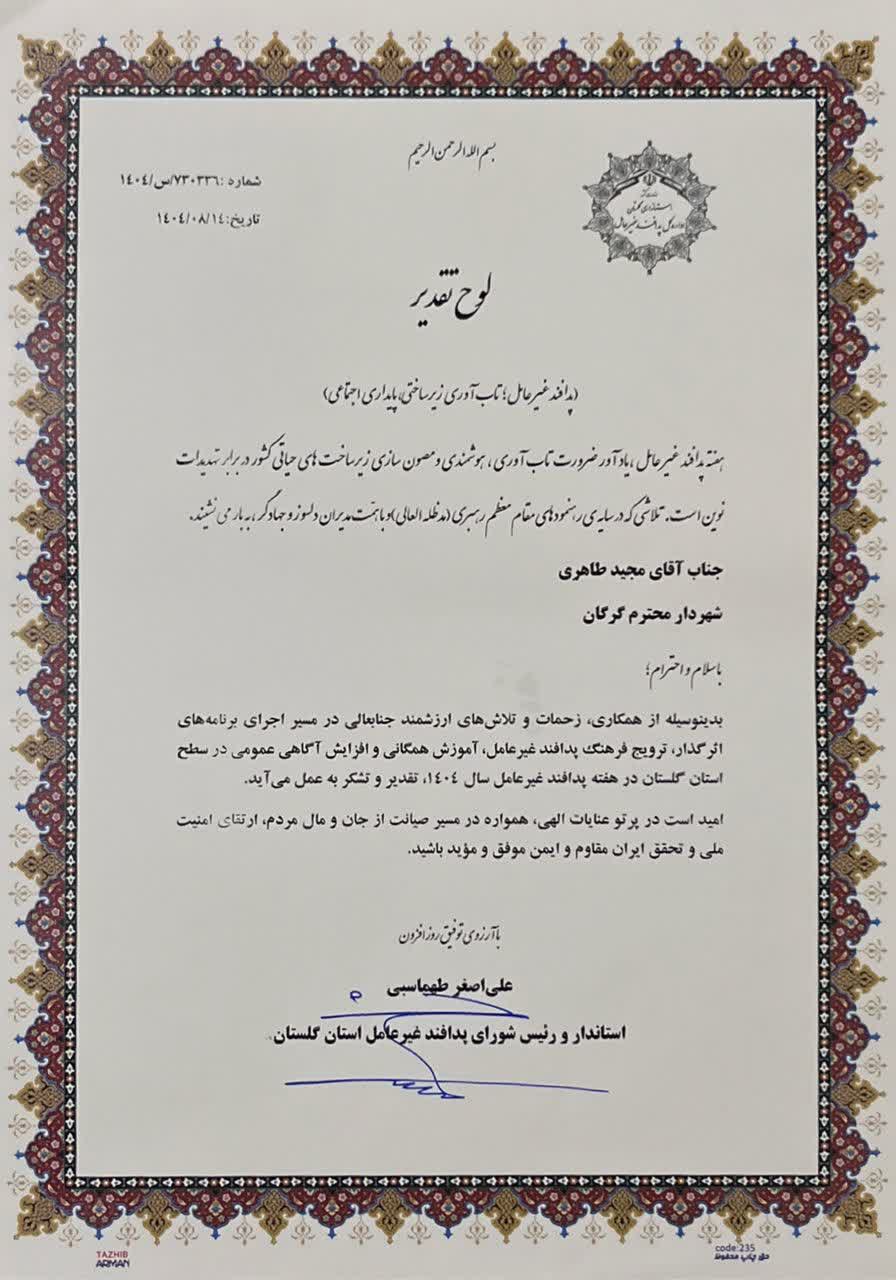 بسم الله الرحمن الرحیم
وزارت کشور
استانداری گلستان
اداره کل پدافند غیرعامل
شماره :۷۳۰۳۳۶/س/۱۴۰۴
تاریخ:۱۴۰۴/۰۸/۱۴
لوح تقدیر
(پدافند غیرعامل؛ تاب آوری زیرساختی، پایداری اجتماعی)
هفته پدافند غیرعامل، یادآور ضرورت تاب آوری، هوشمندی و مصون سازی زیرساخت های حیاتی کشور در برابر تهدیدات
نوین است. تلاشی که در سایه ی رهنمودهای مقام معظم رهبری (مدظله العالی) و با همّت مدیران دلسوز و جهادگر، به بار می نشیند.
جناب آقای مجید طاهری
شهردار محترم گرگان
با سلام و احترام؛
بدینوسیله از همکاری، زحمات و تلاش‌های ارزشمند جنابعالی در مسیر اجرای برنامه‌های
اثرگذار، ترویج فرهنگ پدافند غیرعامل، آموزش همگانی و افزایش آگاهی عمومی در سطح
استان گلستان در هفته پدافند غیرعامل سال ۱۴۰۴، تقدیر و تشکر به عمل می‌آید.
امید است در پرتو عنایات الهی، همواره در مسیر صیانت از جان و مال مردم، ارتقای امنیت
ملی و تحقق ایران مقاوم و ایمن موفق و مؤید باشید.
با آرزوی توفیق روزافزون
علی‌اصغر طهماسبی
استاندار و رئیس شورای پدافند غیرعامل استان گلستان
TAZHIB
ARMAN
code:235
حق چاپ محفوظ